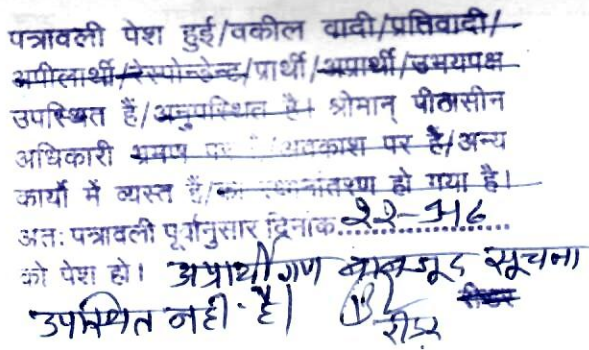 पत्रावली पेश हुई/वकील वादी/प्रतिवादी/
अपीलार्थी/रेस्पोन्डेन्ट/प्रार्थी/अप्रार्थी/उभयपक्ष
उपस्थित हैं/अनुपस्थित है। श्रीमान् पीठासीन
अधिकारी भ्रमण पर अवकाश पर है/अन्य
कार्यो में व्यस्त है/का स्थानांतरण हो गया है।
अतः पत्रावली पूर्वानुसार दिनांक
को पेश हो। अप्रार्थीगण बावजूद सूचना
उपस्थित नही है। रीडर रीडर